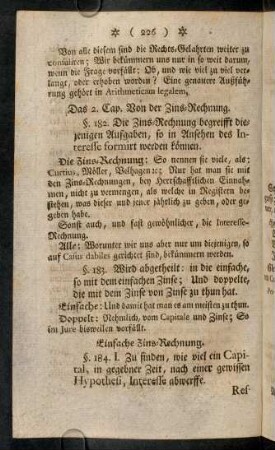 ( 226 )
Von alle diesem sind die Rechts-Gelahrten weiter zu
consuliren; Wir bekümmern uns nur in so weit darum,
wenn die Frage vorfällt: Ob, und wie viel zu viel ver-
langt, oder erhoben worden? Eine genauere Ausführ-
rung gehört in Arithmeticam legalem,
Das 2. Cap. Von der Zins-Rechnung.
§. 182. Die Zins-Rechnung begreifft die-
jenigen Aufgaben, so in Ansehen des In-
teresse formirt werden können.
Die Zins-Rechnung: So nennen sie viele, als;
Curtius, Möller, Velhagen ꝛc; Nur hat man sie mit
den Zins-Rechnungen, bey Herrschafftlichen Einnah-
men, nicht zu vermengen, als welche in Registern be-
stehen, was dieser und jener jährlich zu geben, oder ge-
geben habe.
Sonst auch, und fast gewöhnlicher, die Interesse-
Rechnung.
Alle: Worunter wir uns aber nur um diejenigen, so
auf Casus dabiles gerichtet sind, bekümmern werden.
§. 183. Wird abgetheilt: in die einfache,
so mit dem einfachen Zinse; Und doppelte,
die mit dem Zinse von Zinse zu thun hat.
Einfache: Und damit hat man es am meisten zu thun.
Doppelt: Nehmlich, vom Capitale und Zinse; So
im Jure bisweilen vorfällt.
Einfache Zins-Rechnung.
§. 184. I. Zu finden, wie viel ein Capi-
tal, in gegebner Zeit, nach einer gewissen
Hypothesi, Interesse abwerffe.
Ref-